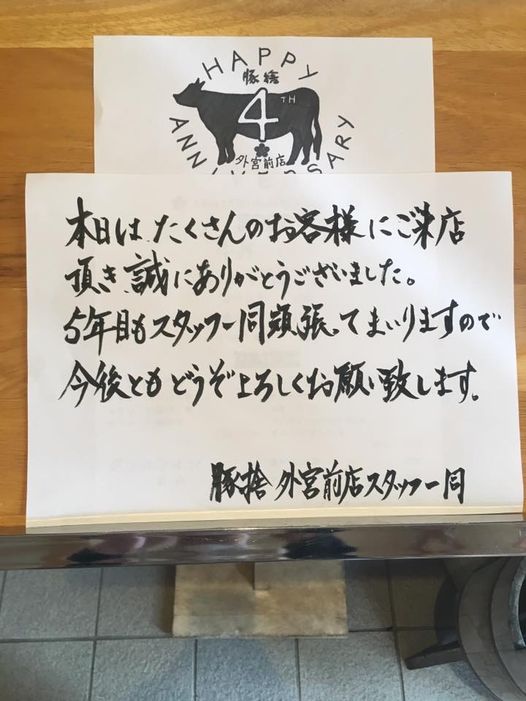 HAPPY
豚捨
4TH
外宮前店
ANNIVERSARY
本日は、たくさんのお客様にご来店
頂き、誠にありがとうございました。
5年目もスタッフ一同頑張ってまいりますので
今後ともどうぞよろしくお願い致します。
豚捨 外宮前店スタッフ一同